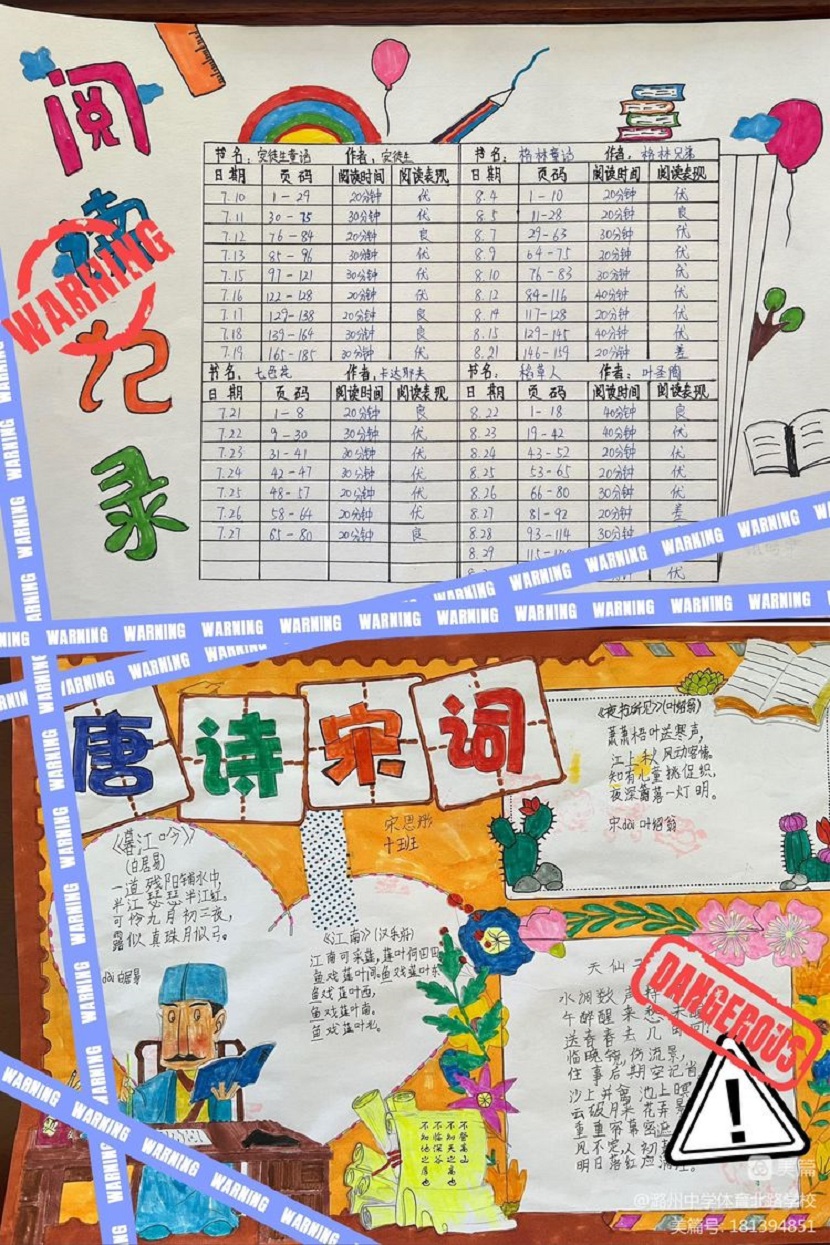 阅
读
记
录
书名：安徒生童话 作者：安徒生
日期 页码 阅读时间 阅读表现
7.10 1-29 20分钟 优
7.11 30-75 30分钟 优
7.12 76-84 20分钟 良
7.13 85-96 30分钟 优
7.15 97-121 30分钟 优
7.16 122-128 20分钟 优
7.17 129-138 20分钟 良
7.18 139-164 30分钟 良
7.19 165-185 30分钟 优
书名：格林童话 作者：格林兄弟
日期 页码 阅读时间 阅读表现
8.4 1-10 20分钟 优
8.5 11-28 20分钟 良
8.7 29-63 30分钟 优
8.9 64-75 20分钟 优
8.10 76-83 30分钟 优
8.12 84-116 40分钟 优
8.14 117-128 20分钟 优
8.15 129-145 40分钟 优
8.21 146-159 20分钟 差
书名：七色花 作者：卡达耶夫
日期 页码 阅读时间 阅读表现
7.21 1-8 20分钟 良
7.22 9-30 30分钟 优
7.23 31-41 30分钟 优
7.24 42-47 30分钟 优
7.25 48-57 20分钟 优
7.26 58-64 20分钟 优
7.27 65-80 20分钟 良
书名：稻草人 作者：叶圣陶
日期 页码 阅读时间 阅读表现
8.22 1-18 40分钟 良
8.23 19-42 40分钟 优
8.24 43-52 20分钟 优
8.25 53-65 20分钟 优
8.26 66-80 30分钟 优
8.27 81-92 20分钟 差
8.28 93-114 30分钟
8.29
优
WARNING
WARNING WARNING WARNING WARNING WARNING WARNING
唐诗宋词
《夜书所见》(叶绍翁)
萧萧梧叶送寒声，
江上秋风动客情。
知有儿童挑促织，
夜深篱落一灯明。
宋 叶绍翁
宋思
十班
《暮江吟》
(白居易)
一道残阳铺水中，
半江瑟瑟半江红。
可怜九月初三夜，
露似真珠月似弓。
白居易
《江南》(汉乐府)
江南可采莲，莲叶何田田
鱼戏莲叶间。鱼戏莲叶东
鱼戏莲叶西，
鱼戏莲叶南。
鱼戏莲叶北。
天仙子
水调数声持
午醉醒来愁未醒
送春春去几时回
临晚镜，伤流景，
往事后期空记省
沙上并禽池上暝
云破月来花弄影
重重帘幕密遮
风不定，人初
明日落红应满径。
不登高山
不知天之高也
不临深谷
不知地之厚也
DANGEROUS
!
美篇
@潞州中学体育北路学校
美篇号: 181394851